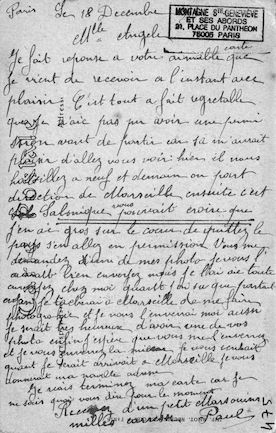 Paris le 18 Decembre
MONTAGNE Ste GENEVIÈVE
ET SES ABORDS
31, PLACE DU PANTHEON
75005 PARIS
Mlle Angele
Je fait reponse a votre aimable carte que
je vient de recevoir a l'instant avec
plaisir C'est tout a fait regretable
que je n'aie pas pu avoir une permi
ssion avant de partir car sa m'aurait
plaisir d'allez vous voir hier il nous
habillez a neuf et demain on part
direction de Marseille ensuite c'est
Salonique vous pouvrait croire que
j'en ai gros sur le coeur de quittez le
pays s'en allez en permission Vous me
demandez d'une de mes photo je vous l'
aurait bien envoyez mais je l'ai
chez moi quant j'ai su que partant
je tacherai a Marseille de me fair
photographier et je vous l'enverai moi aussi
je serait tres heureux d'avoir une de vos
photo enfin j'espere que vous me l'enverrez
et je vous enverrez la mienne je vous
quant je serait arrivait a Marseille je vous
donnerait ma nouvelle adresse
Je vais terminez ma carte car je
ne sais quoi vous dire pour le moment
Recevez d'un petit Marsouin
mille caresses Paul